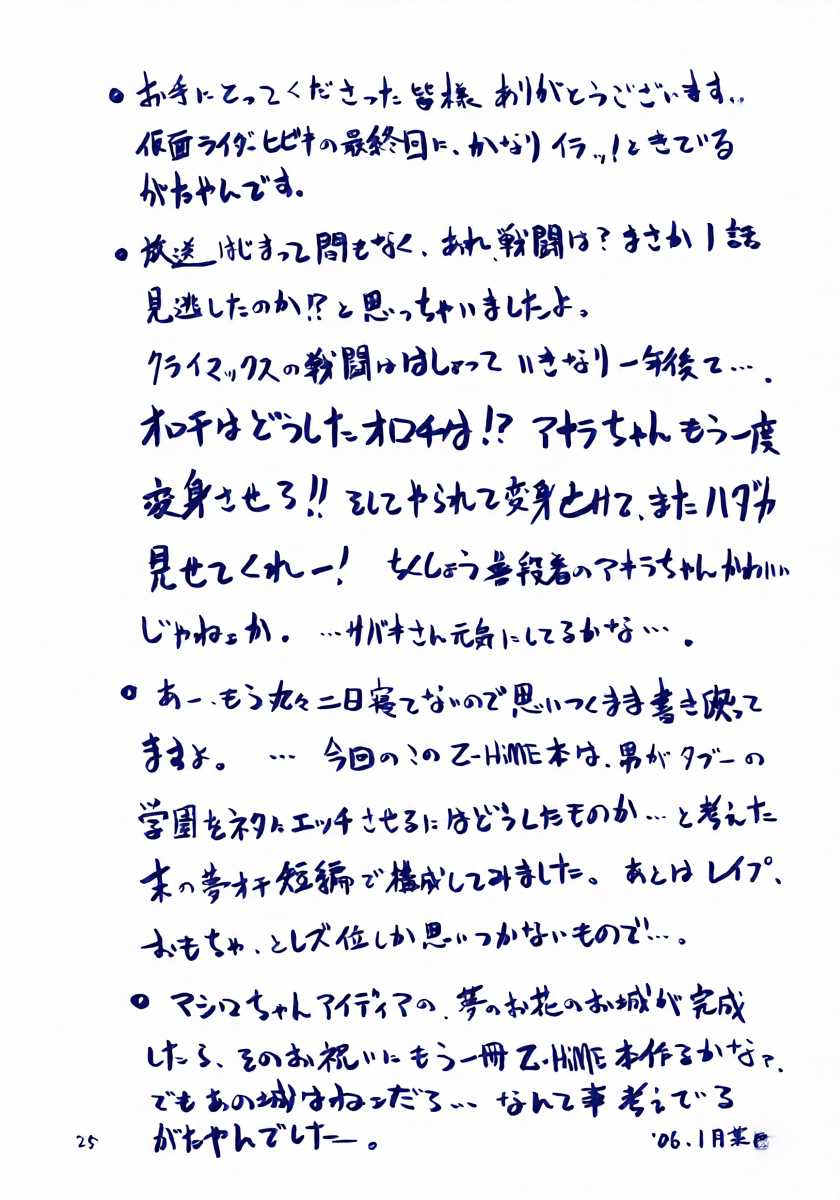 お手にとってくださった皆様 ありがとうございます。
仮面ライダーヒビキの最終回に、かなりイラッ!ときている
がたやんです。
放送はじまって間もなく、あれ、戦闘は?まさか1話
見逃したのか!?と思っちゃいましたよ。
クライマックスの戦闘ははしょって いきなり一年後て…。
オロチはどうしたオロチは!? アキラちゃんもう一度
変身させろ!! そしてやられて変身とけて、またハダカ
見せてくれー! ちくしょう普段着のアキラちゃんかわいい
じゃねェか。…サバキさん元気にしてるかな…。
あー、もう丸々二日寝てないので思いつくまま書き殴って
ますよ。 … 今回のこのZ-HiME本は、男がタブーの
学園をネタにエッチさせるにはどうしたものか…と考えた
末の夢オチ短編で構成してみました。あとはレイプ、
おもちゃ、とレズ位しか思いつかないもので…。
マシロちゃんアイディアの、夢のお花のお城が完成
したら、そのお祝いにもう一冊Z・HiME本作るかな?、
でもあの城はねェだろ… なんて事考えてる
がたやんでしたー。
25
'06.1月